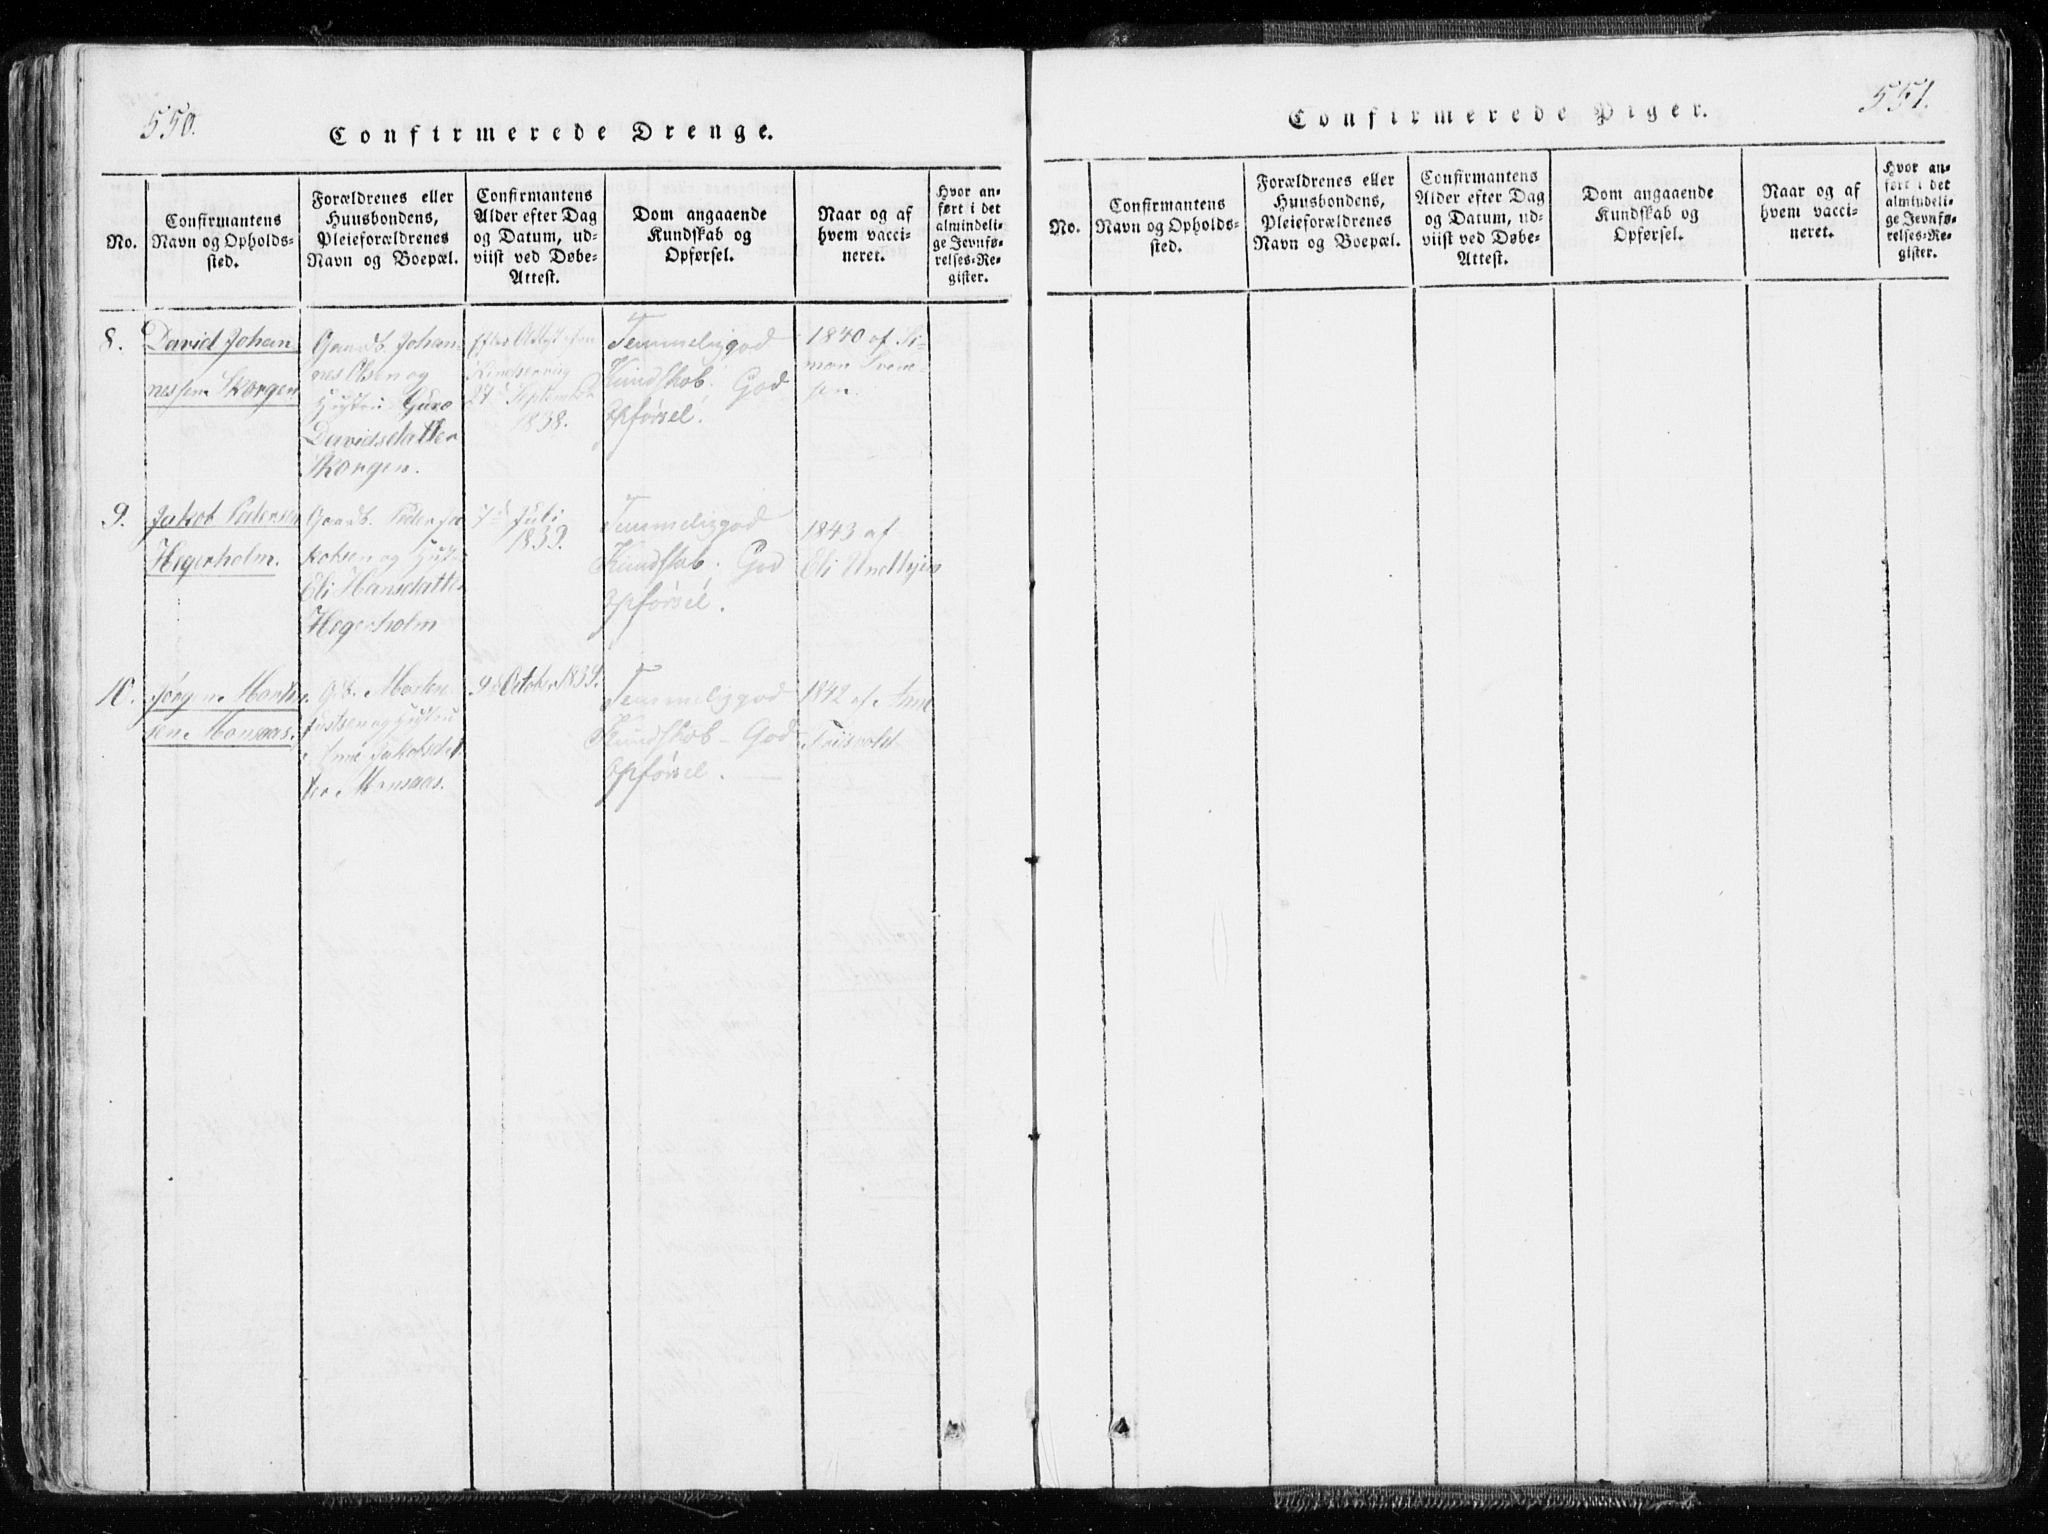 550.
Confirmerede Drenge.
No.
Confirmantens
Navn og Opholds-
sted.
Forældrenes eller
Huusbondens,
Pleieforældrenes
Navn og Boepæl.
Confirmantens
Alder efter Dag
og Datum, ud-
viist ved Døbe-
Attest.
Dom angaaende
Kundskab og
Opførsel.
Naar og af
hvem vacci-
neret.
Hvor an-
ført i det
almindeli-
ge Jevnfø-
relses-Re-
gister.
8.
David Johan
nessen Skorgen
Gaardb. Johan-
nes Olsen og
Hustru Guro
Davidsdatter
Skorgen.
Efter Attest fra
27de September
1838.
Temmelig god
Kundskab. God
Opførsel.
1840 af Si-
mon Svens-
sen.
9.
Jakob Pedersen
Hegerholm.
Gaardb. Peder Ja
kobsen og Hust.
Eli Hansdatter
Hegerholm
7de Juli
1839.
Temmelig god
Kundskab. God
Opførsel.
1843 af
Eli Undhjem
10.
Jørgen Morten
sen Monsaas.
Gb. Morten
og Hustru
Ane Jakobsdat
ter Monsaas.
9de October 1839.
Temmelig god
Kundskab – God
Opførsel.
1842 af Ane
Friisvold
551.
Confirmerede Piger.
No.
Confirmantens
Navn og Opholds-
sted.
Forældrenes eller
Huusbondens,
Pleieforældrenes
Navn og Boepæl.
Confirmantens
Alder efter Dag
og Datum, ud-
viist ved Døbe-
Attest.
Dom angaaende
Kundskab og
Opførsel.
Naar og af
hvem vacci-
neret.
Hvor an-
ført i det
almindeli-
ge Jevnfø-
relses-Re-
gister.